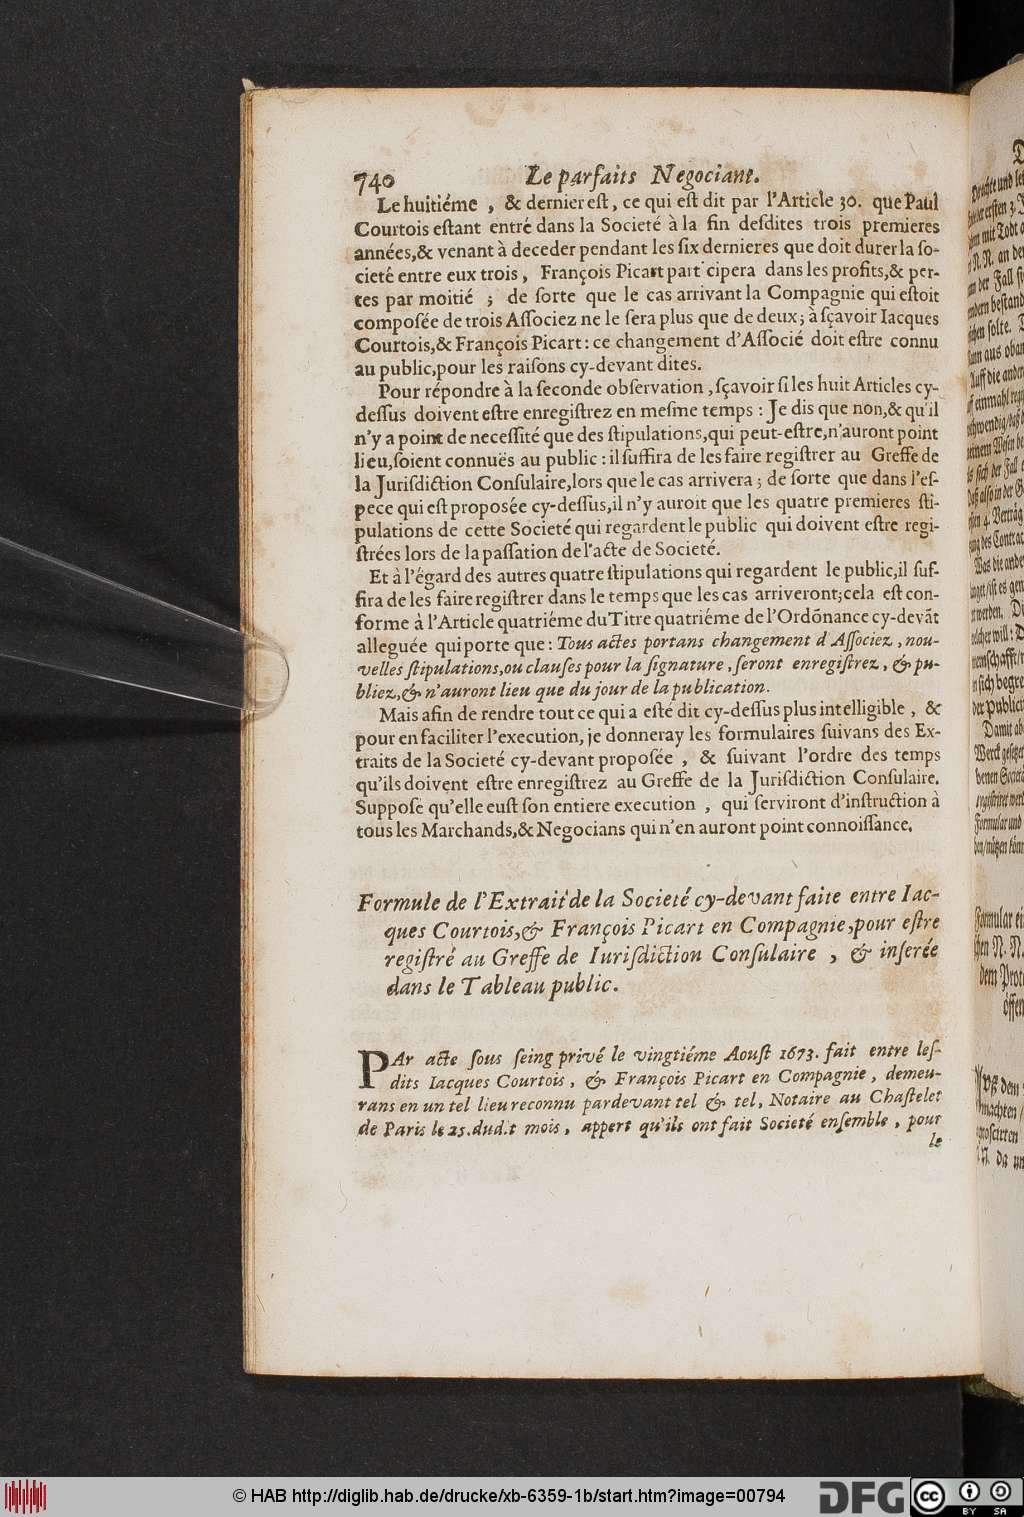 740 Le parfaits Negociant.
Le huitiéme , & dernier eſt , ce qui eſt dit par l'Article 30. que Paul
Courtois eſtant entré dans la Societé à la fin deſdites trois premieres
années,& venant à deceder pendant les ſix dernieres que doit durer la ſo-
cieté entre eux trois , François Picart part cipera dans les profits,& per-
tes par moitié ; de ſorte que le cas arrivant la Compagnie qui eſtoit
compoſée de trois Aſſociez ne le ſera plus que de deux; à ſçavoir Iacques
Courtois,& François Picart: ce changement d'Aſſocié doit eſtre connu
au public,pour les raiſons cy-devant dites.
Pour répondre à la ſeconde obſervation ,ſçavoir ſi les huit Articles cy-
deſſus doivent eſtre enregiſtrez en meſme temps : Je dis que non,& qu'il
n'y a point de neceſſité que des ſtipulations,qui peut-eſtre,n'auront point
lieu,ſoient connuës au public : il ſuffira de les faire regiſtrer au Greffe de
la Juriſdiction Conſulaire,lors que le cas arrivera ; de ſorte que dans l'eſ-
pece qui eſt propoſée cy-deſſus,il n'y auroit que les quatre premieres ſti-
pulations de cette Societé qui regardent le public qui doivent eſtre regi-
ſtrées lors de la paſſation de l'acte de Societé.
Et à l'égard des autres quatre ſtipulations qui regardent le public,il ſuf-
fira de les faire regiſtrer dans le temps que les cas arriveront;cela eſt con-
forme à l'Article quatriéme du Titre quatriéme de l'Ordõnance cy-devãt
alleguée qui porte que : Tous actes portans changement d Aſſociez , nou-
velles ſtipulations,ou clauſes pour la ſignature , ſeront enregiſtrez , & pu-
bliez,& n'auront lieu que du jour de la publication.
Mais afin de rendre tout ce qui a eſté dit cy-deſſus plus intelligible , &
pour en faciliter l'execution, je donneray les formulaires ſuivans des Ex-
traits de la Societé cy-devant propoſée , & ſuivant l'ordre des temps
qu'ils doivent eſtre enregiſtrez au Greffe de la Juriſdiction Conſulaire.
Suppoſe qu'elle euſt ſon entiere execution , qui ſerviront d'inſtruction à
tous les Marchands,& Negocians qui n'en auront point connoiſſance.
Formule de l'Extrait de la Societé cy-devant faite entre Iac-
ques Courtois,& François Picart en Compagnie,pour eſtre
regiſtré au Greffe de Iuriſdiction Conſulaire , & inſerée
dans le Tableau public.
PAr acte ſous ſeing privé le vingtiéme Aouſt 1673. fait entre leſ-
dits Iacques Courtois , & François Picart en Compagnie , demeu-
rans en un tel lieu reconnu pardevant tel & tel, Notaire au Chaſtelet
de Paris le 25. dud.t mois , appert qu'ils ont fait Societé enſemble , pour
le
© HAB http://diglib.hab.de/drucke/xb-6359-1b/start.htm?image=00794
DFG
cc BY SA